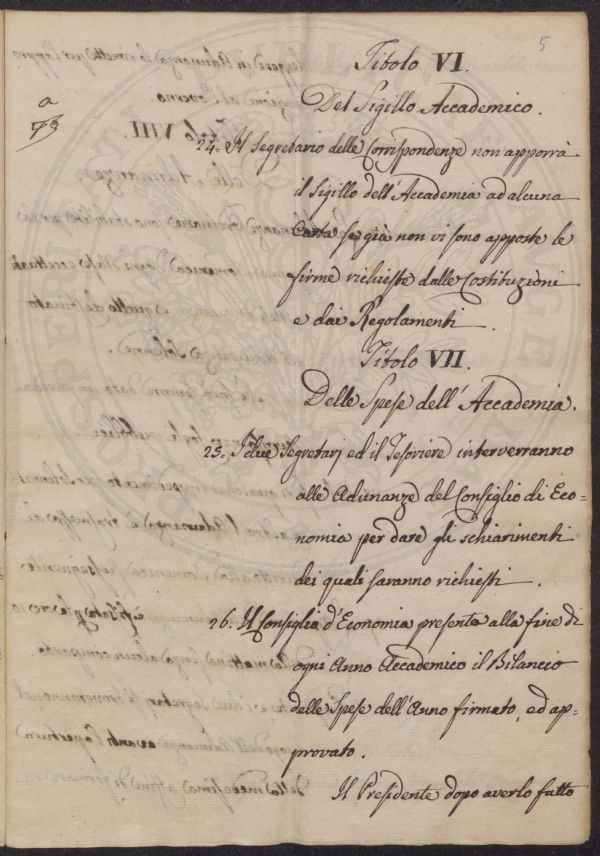 5
Titolo VI.
Del Sigillo Accademico.
a
73
24. Il Segretario delle Corrispondenze non apporrà
il Sigillo dell'Accademia ad alcuna
Carta se già non vi sono apposte le
firme richieste dalle Costituzioni
e dai Regolamenti.
Titolo VII.
Delle Spese dell'Accademia.
25. I due Segretarj ed il Tesoriere interverranno
alle Adunanze del Consiglio di Eco=
nomia per dare gli schiarimenti
dei quali saranno richiesti.
26. Il Consiglio d'Economia presenta alla fine di
ogni Anno Accademico il Bilancio
delle Spese dell'Anno firmato, ed ap=
provato.
Il Presidente dopo averlo fatto